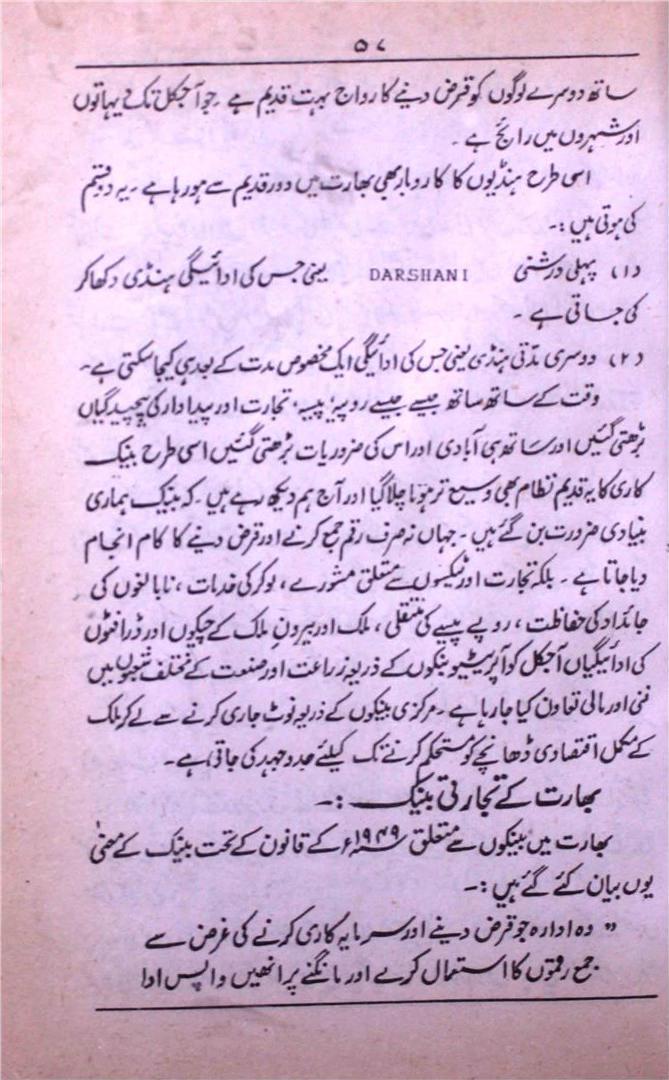 ۵۷
ساتھ دوسرے لوگوں کو قرض دینے کا رواج بہت قدیم ہے ۔ جو آجکل تک دیہاتوں
اور شہروں میں رائج ہے ۔
اسی طرح ہنڈیوں کا کاروبار بھی بھارت میں دور قدیم سے ہو رہا ہے ۔ یہ دو قسم
کی ہوتی ہیں :۔
(۱) پہلی درشنی DARSHANI یعنی جس کی ادائیگی ہنڈی دکھا کر
کی جاتی ہے ۔
(۲) دوسری مدّتی ہنڈی یعنی جس کی ادائیگی ایک مخصوص مدت کے بعد ہی کیجا سکتی ہے ۔
وقت کے ساتھ ساتھ جیسے جیسے روپیہ پیسہ، تجارت اور پیداوار کی پیچیدگیاں
بڑھتی گئیں اور ساتھ ہی آبادی اور اس کی ضروریات بڑھتی گئیں اسی طرح بینک
کاری کا یہ قدیم نظام بھی وسیع تر ہوتا چلا گیا اور آج ہم دیکھ رہے ہیں ۔ کہ بینک ہماری
بنیادی ضرورت بن گئے ہیں ۔ جہاں نہ صرف رقم جمع کرنے اور قرض دینے کا کام انجام
دیا جاتا ہے ۔ بلکہ تجارت اور ٹیکسوں سے متعلق مشورے ، لوکر کی خدمات ، نابالغوں کی
جائداد کی حفاظت ، روپے پیسے کی منتقلی ، ملک اور بیرونِ ملک کے چیکوں اور ڈرافٹوں
کی ادائیگیاں آجکل کوآپریٹیو بنکوں کے ذریعہ زراعت اور صنعت کے مختلف شعبوں میں
فنی اور مالی تعاون کیا جا رہا ہے ۔ مرکزی بینکوں کے ذریعہ نوٹ جاری کرنے سے لے کر ملک
کے مکمل اقتصادی ڈھانچے کو مستحکم کرنے تک کیلئے جدوجہد کی جاتی ہے ۔
بھارت کے تجارتی بینک :۔
بھارت میں بینکوں سے متعلق ۱۹۴۹ء کے قانون کے تحت بینک کے معنیٰ
یوں بیان کئے گئے ہیں :۔
" وہ ادارہ جو قرض دینے اور سرمایہ کاری کرنے کی غرض سے
جمع رقموں کا استعمال کرے اور مانگنے پر انھیں واپس ادا